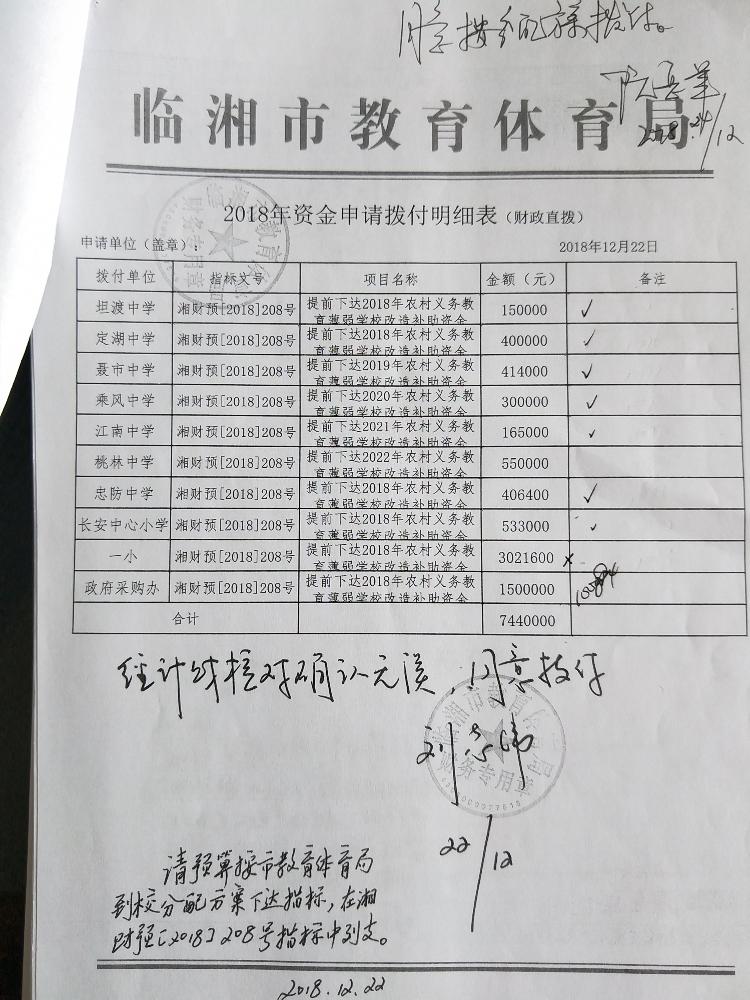 同意按分配方案拨付。
2018.
24/12
临湘市教育体育局
2018年资金申请拨付明细表（财政直拨）
申请单位（盖章）：	2018年12月22日
拨付单位	指标文号	项目名称	金额（元）	备注
坦渡中学	湘财预[2018]208号	提前下达2018年农村义务教育薄弱学校改造补助资金	150000	✓
定湖中学	湘财预[2018]208号	提前下达2018年农村义务教育薄弱学校改造补助资金	400000	✓
聂市中学	湘财预[2018]208号	提前下达2019年农村义务教育薄弱学校改造补助资金	414000	✓
乘风中学	湘财预[2018]208号	提前下达2020年农村义务教育薄弱学校改造补助资金	300000	✓
江南中学	湘财预[2018]208号	提前下达2021年农村义务教育薄弱学校改造补助资金	165000	✓
桃林中学	湘财预[2018]208号	提前下达2022年农村义务教育薄弱学校改造补助资金	550000
忠防中学	湘财预[2018]208号	提前下达2018年农村义务教育薄弱学校改造补助资金	406400	✓
长安中心小学	湘财预[2018]208号	提前下达2018年农村义务教育薄弱学校改造补助资金	533000	✓
一小	湘财预[2018]208号	提前下达2018年农村义务教育薄弱学校改造补助资金	3021600	×
政府采购办	湘财预[2018]208号	提前下达2018年农村义务教育薄弱学校改造补助资金	1500000
合计	7440000
经计财核对确认无误，同意拨付
临湘市教育体育局
财务专用章
22/12
请预算按市教育体育局
到校分配方案下达指标，在湘
财预[2018]208号指标中列支。
2018.12.22